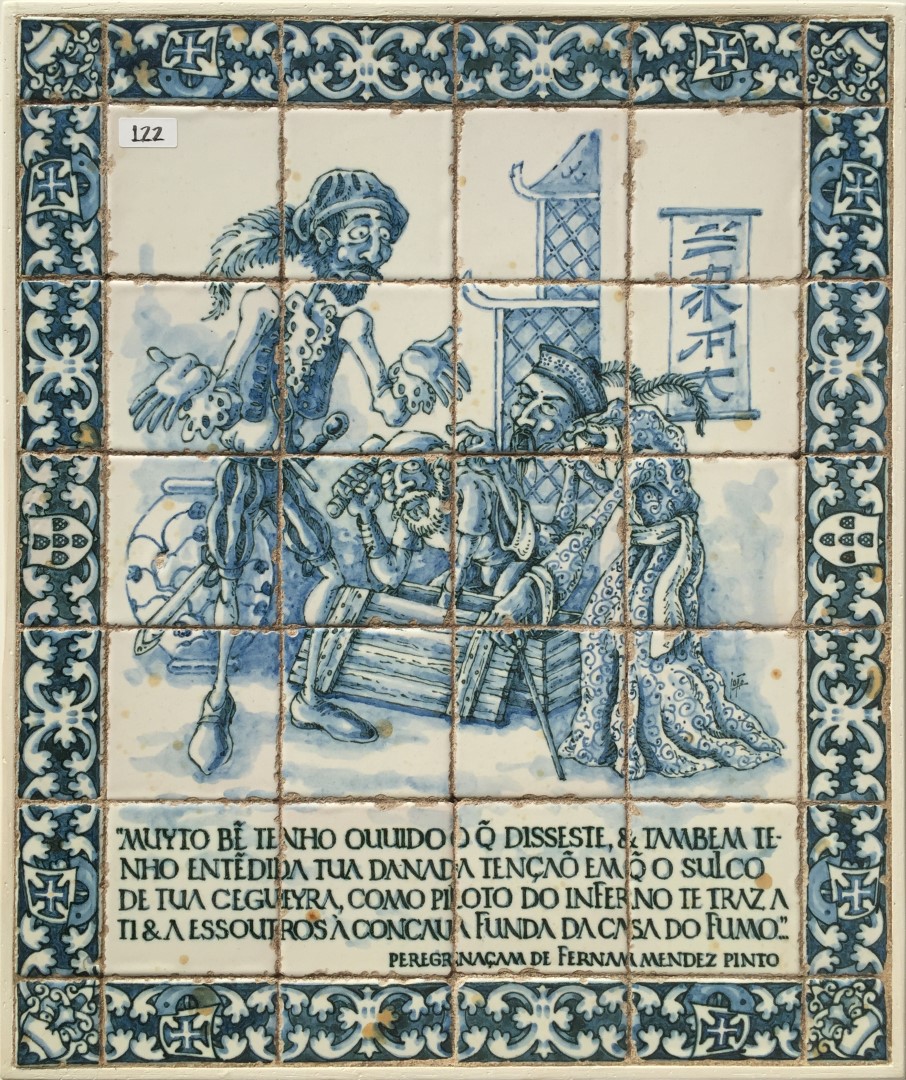 122
"MUYTO BẼ TENHO OUUIDO O Q̃ DISSESTE, & TAMBEM TE-
NHO ENTẼDIDA TUA DANADA TENÇAÕ EM Q̃ O SULCO
DE TUA CEGUEYRA, COMO PILOTO DO INFERNO TE TRAZ A
TI & A ESSOUTROS À CONCAUA FUNDA DA CASA DO FUMO."
PEREGRINAÇAM DE FERNAM MENDEZ PINTO